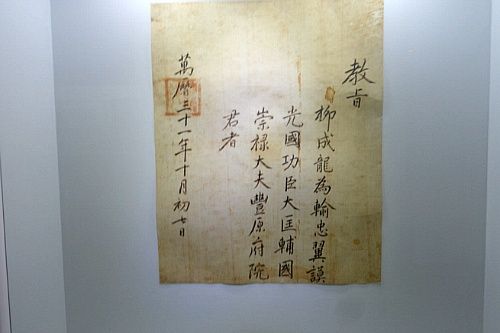 教旨
柳成龍為輸忠翼謨
光國功臣大匡輔國
崇祿大夫豐原府院
君者
萬曆三十一年十月初七日